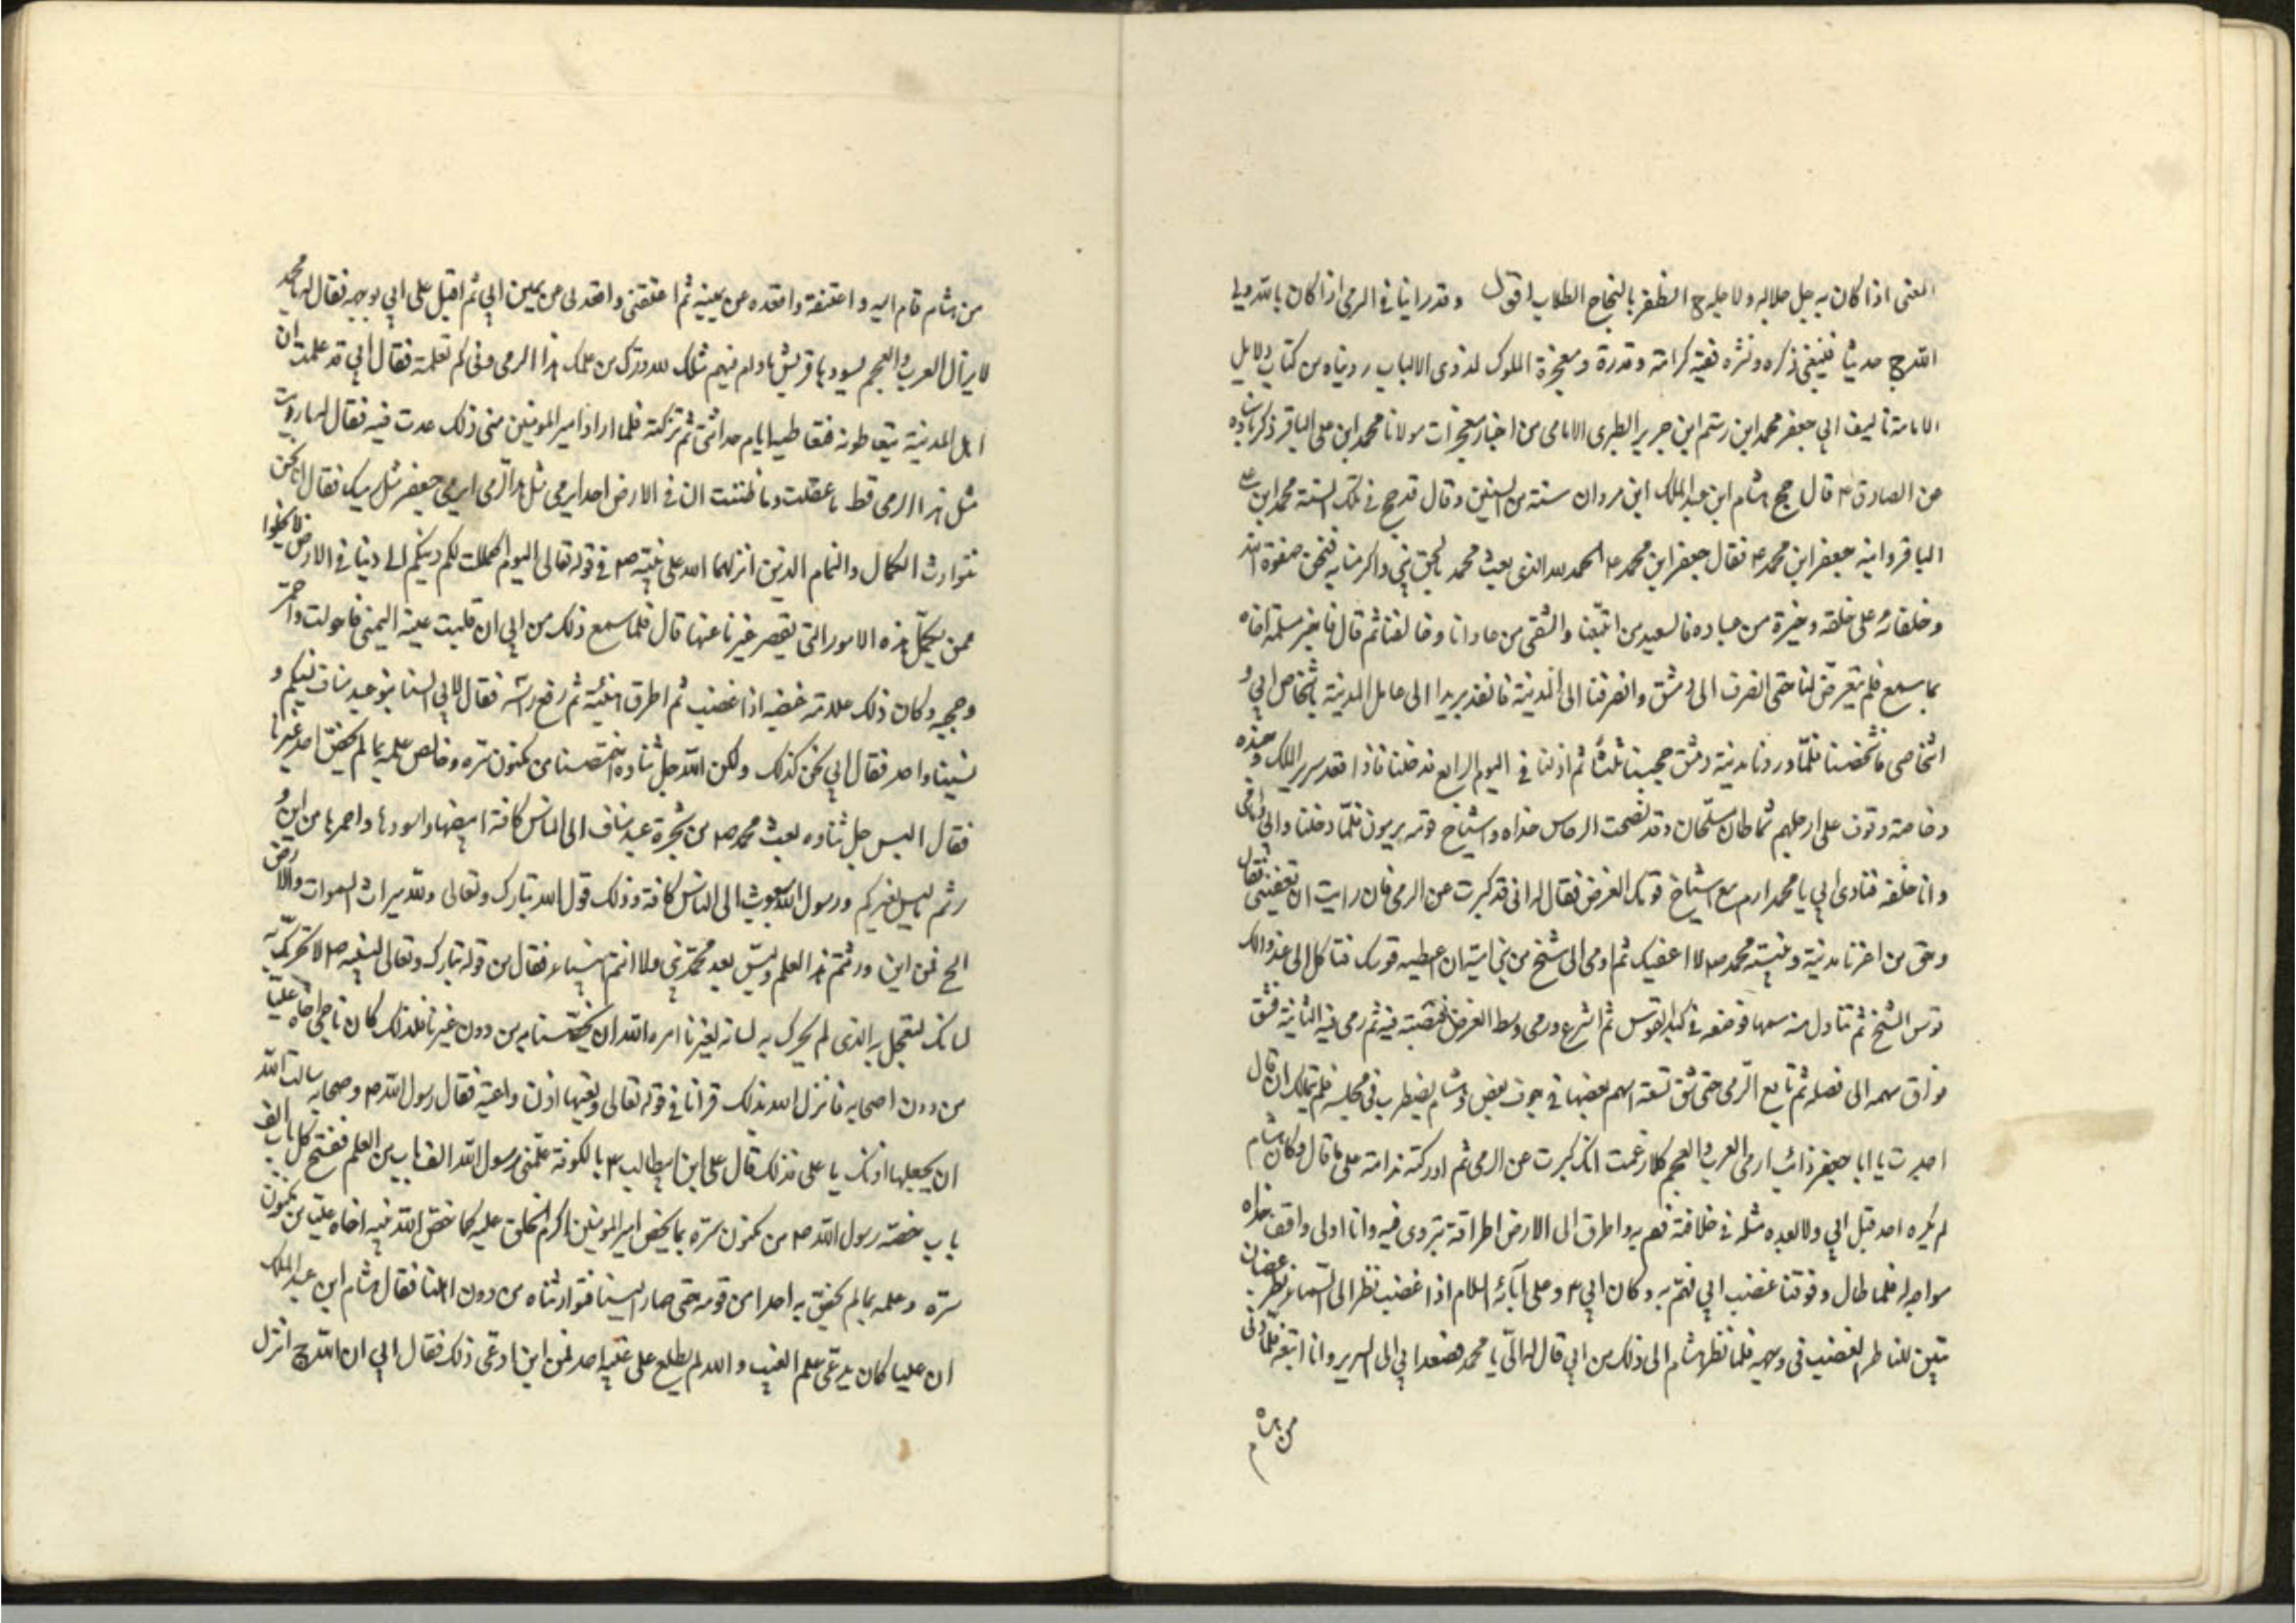 المعنى اذا كان به جل جلاله ولاجله ج الظفر بالنجاح الطلاب اقول وقد راينا في الرمى اذا كان بالله ولله
الله ج حديثا فينبغى ذكره ونشره ففيه كرامة وقدرة ومعجزة الملوك لذوى الالباب رويناه من كتاب دلايل
الامامة تاليف ابي جعفر محمد ابن رستم ابن جرير الطبرى الامامى من اخبار معجزات مولانا محمد ابن على الباقر ذكر باسناده
عن الصادق ع قال حج هشام ابن عبد الملك ابن مروان سنة من السنين وقال قد حج في تلك السنة محمد ابن على
الباقر وابنه جعفر ابن محمد ع فقال جعفر ابن محمد ع الحمد لله الذى بعث محمد بالحق نبي واكرمنا به فنحن صفوة الله
وخلفائه على خلقه وخيرة من عباده فالسعيد من اتبعنا والشقى من عادانا وخالفنا ثم قال فاخبر مسلمة اخاه
بما سمع فلم يتعرض لنا حتى انصرف الى دمشق وانصرفنا الى المدينة فانفذ بريدا الى عامل المدينة باشخاص ابي و
اشخاصى فاشخصنا فلما وردنا مدينة دمشق حجبنا ثلثا ثم اذن لنا في اليوم الرابع فدخلنا فاذا قعد سرير الملك وجنده
وخاصته وقوف على ارجلهم سماطان متسلحان وقد نصبت البرجاس حذاه واشياخ قومه يرمون فلما دخلنا وابي امامى
وانا خلفه فنادى ابي يا محمد ارم مع اشياخ قومك الغرض فقال له انى قد كبرت عن الرمى فان رايت ان تعفينى فقال
وحق من اعزنا بدينه ونبيه محمد ص لا اعفيك ثم اومى الى شيخ من بني امية ان اعطيه قوسك فتناول ابى عند ذلك
قوس الشيخ ثم تناول منه سهما فوضعه في كبد القوس ثم انتزع ورمى وسط الغرض فنصبته فيه ثم رمى فيه الثانية فشق
فواق سهمه الى نصله ثم تابع الرمى حتى شق تسعة اسهم بعضها في جوف بعض وهشام يضطرب في مجلسه فلم يتمالك ان قال
اجدت يا ابا جعفر وانت ارمى العرب والعجم كلا زعمت انك كبرت عن الرمى ثم ادركته ندامة على ما قال وكان هشام
لم يكره احد قبل ابي ولا بعده مثله في خلافته فهم به واطرق الى الارض اطراقة يتروى فيه وانا وابى واقف حذاه
مواجه له فلما طال وقوفنا غضب ابي فهم به وكان ابي ع وعلى آبائه السلام اذا غضب نظر الى السماء نظر غضبان
يتبين للناظر الغضب في وجهه فلما نظر هشام الى ذلك من ابي قال له الىّ يا محمد فصعد ابي الى السرير وانا اتبعه فلما دنى
من هشام
من هشام قام اليه واعتنقه واقعده عن يمينه ثم اعتنقنى واقعدنى عن يمين ابي ثم اقبل على ابي بوجهه فقال له يا محمد
لا يزال العرب والعجم يسودها قريش ما دام فيهم مثلك لله درك من علمك هذا الرمى وفي كم تعلمته فقال ابي قد علمت ان
اهل المدينة يتعاطونه فتعاطيته ايام حداثتى ثم تركته فلما اراد امير المومنين منى ذلك عدت فيه فقال له ما رايت
مثل هذا الرمى قط ما عقلت وما ظننت ان في الارض احد يرمى مثل هذا الرمى ايرمى جعفر مثل رميك فقال انا نحن
نتوارث الكمال والتمام الذين انزلهما الله على نبيه ص في قوله تعالى اليوم اكملت لكم دينكم الى دينا فى الارض لا يخلوا
ممن يكمل هذه الامور التى يقصر غيرنا عنها قال فلما سمع ذلك من ابي ان قلبت عينه اليمنى فاحولت واحمر
وجهه وكان ذلك علامة غضبه اذا غضب ثم اطرق هنيئة ثم رفع راسه فقال لابي السنا بنو عبد مناف نسبكم و
نسبنا واحد فقال ابي نحن كذلك ولكن الله جل ثناوه اختصنا من مكنون سره وخالص علمه بما لم يخص احد غيرنا
فقال اليس جل ثناوه بعث محمد ص من شجرة عبد مناف الى الناس كافة ابيضها واسودها واحمرها من اين و
رثتم ما ليس لغيركم ورسول الله مبعوث الى الناس كافة وذلك قول الله تبارك وتعالى ولله ميراث السموات والارض
الخ فمن اين ورثتم هذا العلم وليس بعد محمد نبي ولا انتم انبياء فقال من قوله تبارك وتعالى لنبيه ص لا تحرك به
لسانك لتعجل به الذى لم يحرك به لسانه لغيرنا امره الله ان يخصنا به من دون غيرنا فلذلك كان ناجى اخاه عليا
من دون اصحابه فانزل الله بذلك قرانا في قوله تعالى وتعيها اذن واعية فقال رسول الله ص وصحابه سالت الله
ان يجعلها اذنك يا على فذلك قال على ابن ابيطالب ع بالكوفة علمنى رسول الله الف باب من العلم ففتح كل باب الف
باب خصه رسول الله ص من مكنون سره بما يخص امير المومنين اكرم الخلق عليه كما خص الله نبيه اخاه عليا من مكنون
سره وعلمه بما لم يخص به احدا من قومه حتى صار الينا فتوارثناه من دون اهلنا فقال هشام ابن عبد الملك
ان عليا كان يدعى علم الغيب والله لم يطلع على غيبه احد فمن اين ادعى ذلك فقال ابي ان الله ج انزل